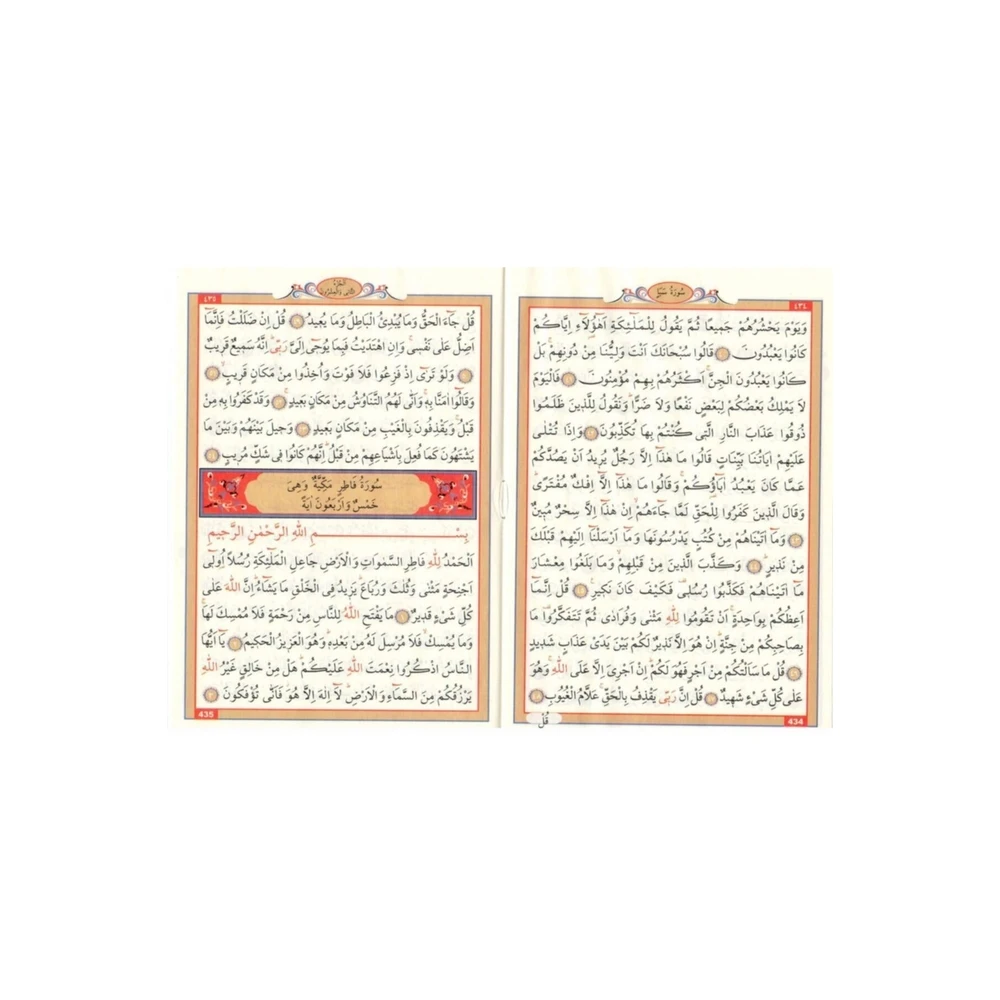 سُورَةُ سَبَأٍ
٤٣٤
وَيَوْمَ يَحْشُرُهُمْ جَمِيعًا ثُمَّ يَقُولُ لِلْمَلٰٓئِكَةِ اَهٰٓؤُ۬لَٓاءِ اِيَّاكُمْ
كَانُوا يَعْبُدُونَ ﴿٤٠﴾ قَالُوا سُبْحَانَكَ اَنْتَ وَلِيُّنَا مِنْ دُونِهِمْۚ بَلْ
كَانُوا يَعْبُدُونَ الْجِنَّۚ اَكْثَرُهُمْ بِهِمْ مُؤْمِنُونَ ﴿٤١﴾ فَالْيَوْمَ
لَا يَمْلِكُ بَعْضُكُمْ لِبَعْضٍ نَفْعًا وَلَا ضَرًّاۜ وَنَقُولُ لِلَّذِينَ ظَلَمُوا
ذُوقُوا عَذَابَ النَّارِ الَّتِي كُنْتُمْ بِهَا تُكَذِّبُونَ ﴿٤٢﴾ وَاِذَا تُتْلٰى
عَلَيْهِمْ اٰيَاتُنَا بَيِّنَاتٍ قَالُوا مَا هٰذَٓا اِلَّا رَجُلٌ يُرِيدُ اَنْ يَصُدَّكُمْ
عَمَّا كَانَ يَعْبُدُ اٰبَٓاؤُ۬كُمْۚ وَقَالُوا مَا هٰذَٓا اِلَّٓا اِفْكٌ مُفْتَرًىۜ
وَقَالَ الَّذِينَ كَفَرُوا لِلْحَقِّ لَمَّا جَٓاءَهُمْۙ اِنْ هٰذَٓا اِلَّا سِحْرٌ مُبِينٌ
﴿٤٣﴾ وَمَٓا اٰتَيْنَاهُمْ مِنْ كُتُبٍ يَدْرُسُونَهَا وَمَٓا اَرْسَلْنَٓا اِلَيْهِمْ قَبْلَكَ
مِنْ نَذِيرٍۜ ﴿٤٤﴾ وَكَذَّبَ الَّذِينَ مِنْ قَبْلِهِمْۙ وَمَا بَلَغُوا مِعْشَارَ
مَٓا اٰتَيْنَاهُمْ فَكَذَّبُوا رُسُلِي فَكَيْفَ كَانَ نَكِيرِ۟ ﴿٤٥﴾ قُلْ اِنَّمَٓا
اَعِظُكُمْ بِوَاحِدَةٍۚ اَنْ تَقُومُوا لِلّٰهِ مَثْنٰى وَفُرَادٰى ثُمَّ تَتَفَكَّرُوا۠ مَا
بِصَاحِبِكُمْ مِنْ جِنَّةٍۜ اِنْ هُوَ اِلَّا نَذِيرٌ لَكُمْ بَيْنَ يَدَيْ عَذَابٍ شَدِيدٍ
﴿٤٦﴾ قُلْ مَا سَاَلْتُكُمْ مِنْ اَجْرٍ فَهُوَ لَكُمْۜ اِنْ اَجْرِيَ اِلَّا عَلَى اللّٰهِۚ وَهُوَ
عَلٰى كُلِّ شَيْءٍ شَهِيدٌ ﴿٤٧﴾ قُلْ اِنَّ رَبِّي يَقْذِفُ بِالْحَقِّۚ عَلَّامُ الْغُيُوبِ ﴿٤٨﴾
قُلْ
434
اَلْجُزْءُ
الثَّانِي وَالْعِشْرُونَ
٤٣٥
قُلْ جَٓاءَ الْحَقُّ وَمَا يُبْدِئُ الْبَاطِلُ وَمَا يُعِيدُ ﴿٤٩﴾ قُلْ اِنْ ضَلَلْتُ فَاِنَّمَٓا
اَضِلُّ عَلٰى نَفْسِيۚ وَاِنِ اهْتَدَيْتُ فَبِمَا يُوحِٓي اِلَيَّ رَبِّيۜ اِنَّهُ سَمِيعٌ قَرِيبٌ
﴿٥٠﴾ وَلَوْ تَرٰٓى اِذْ فَزِعُوا فَلَا فَوْتَ وَاُخِذُوا مِنْ مَكَانٍ قَرِيبٍۙ ﴿٥١﴾
وَقَالُٓوا اٰمَنَّا بِهِۚ وَاَنّٰى لَهُمُ التَّنَاوُشُ مِنْ مَكَانٍ بَعِيدٍۚ ﴿٥٢﴾ وَقَدْ كَفَرُوا بِهِ مِنْ
قَبْلُۚ وَيَقْذِفُونَ بِالْغَيْبِ مِنْ مَكَانٍ بَعِيدٍ ﴿٥٣﴾ وَحِيلَ بَيْنَهُمْ وَبَيْنَ مَا
يَشْتَهُونَ كَمَا فُعِلَ بِاَشْيَاعِهِمْ مِنْ قَبْلُۜ اِنَّهُمْ كَانُوا فِي شَكٍّ مُرِيبٍ ﴿٥٤﴾
سُورَةُ فَاطِرٍ مَكِّيَّةٌ وَهِيَ
خَمْسٌ وَاَرْبَعُونَ اٰيَةً
بِسْمِ اللّٰهِ الرَّحْمٰنِ الرَّحِيمِ
اَلْحَمْدُ لِلّٰهِ فَاطِرِ السَّمٰوَاتِ وَالْاَرْضِ جَاعِلِ الْمَلٰٓئِكَةِ رُسُلًا اُو۬لِٓي
اَجْنِحَةٍ مَثْنٰى وَثُلٰثَ وَرُبَاعَۜ يَزِيدُ فِي الْخَلْقِ مَا يَشَٓاءُۜ اِنَّ اللّٰهَ عَلٰى
كُلِّ شَيْءٍ قَدِيرٌ ﴿١﴾ مَا يَفْتَحِ اللّٰهُ لِلنَّاسِ مِنْ رَحْمَةٍ فَلَا مُمْسِكَ لَهَاۚ
وَمَا يُمْسِكْۙ فَلَا مُرْسِلَ لَهُ مِنْ بَعْدِهِۜ وَهُوَ الْعَزِيزُ الْحَكِيمُ ﴿٢﴾ يَٓا اَيُّهَا
النَّاسُ اذْكُرُوا نِعْمَتَ اللّٰهِ عَلَيْكُمْۜ هَلْ مِنْ خَالِقٍ غَيْرُ اللّٰهِ
يَرْزُقُكُمْ مِنَ السَّمَٓاءِ وَالْاَرْضِۜ لَٓا اِلٰهَ اِلَّا هُوَۘ فَاَنّٰى تُؤْفَكُونَ ﴿٣﴾
435